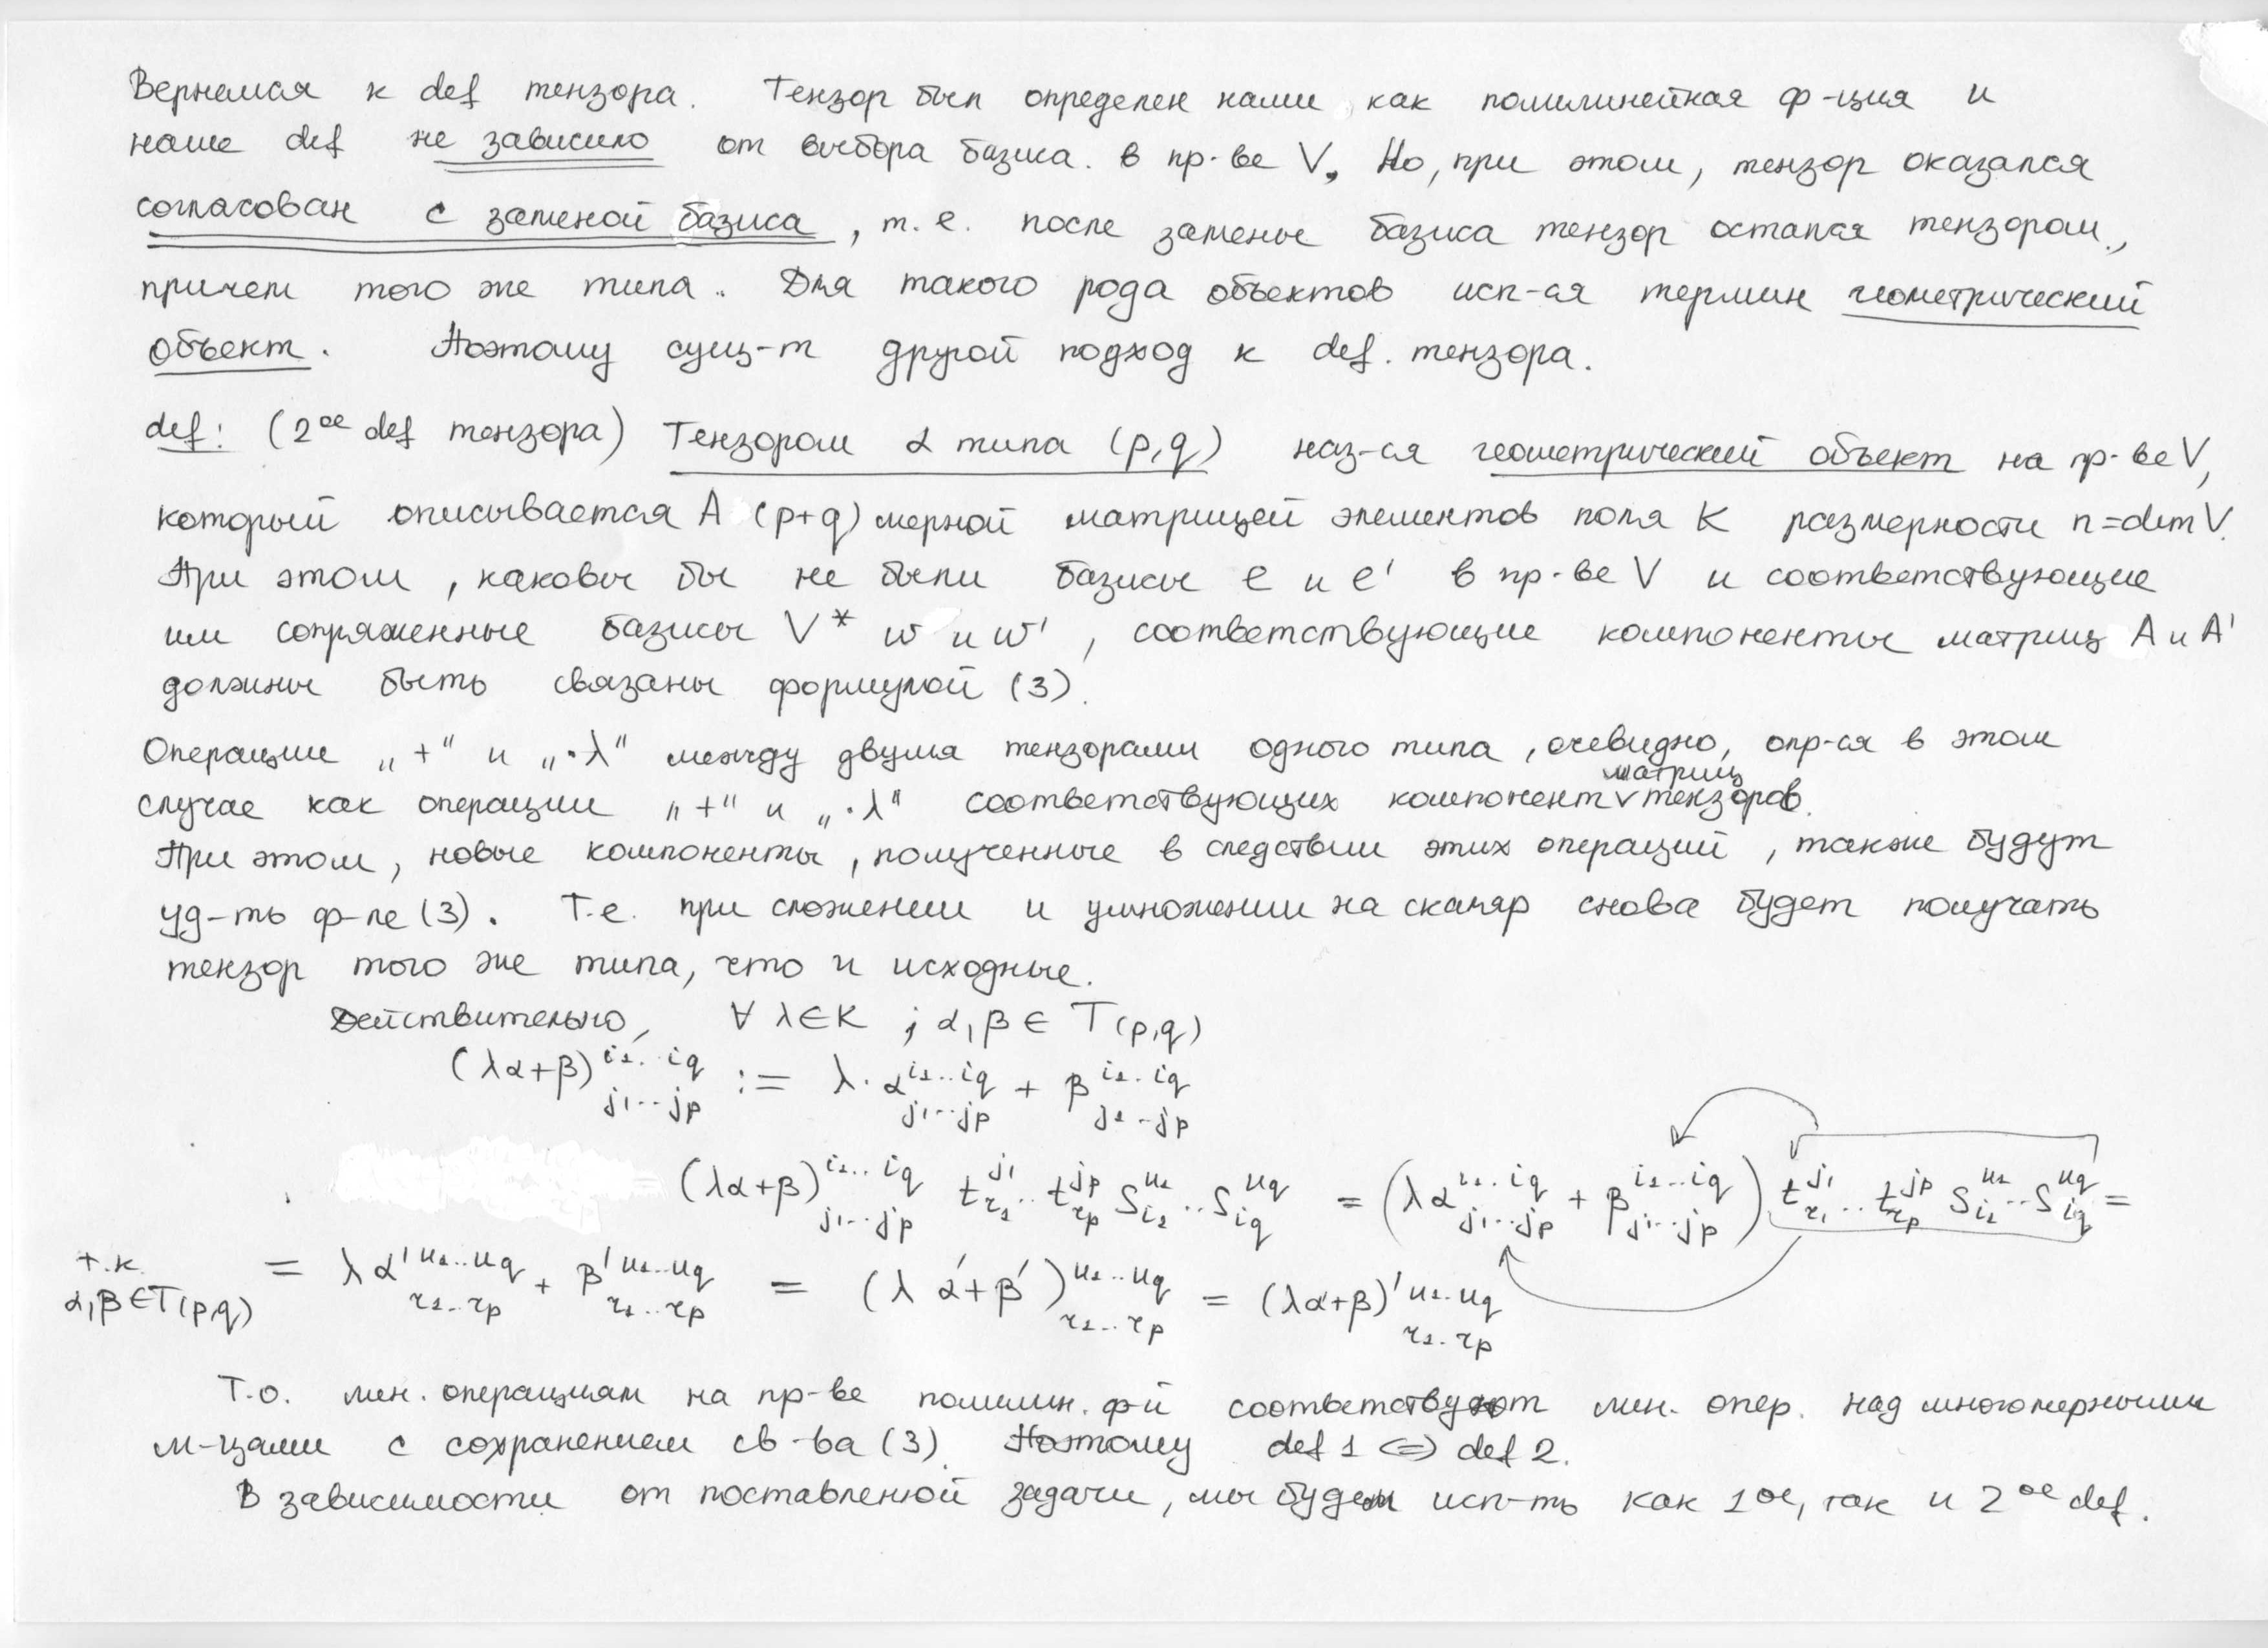 Вернемся к def тензора. Тензор был определен нами, как полилинейная ф-ция и
наше def не зависило от выбора базиса. в пр-ве V, Но, при этом, тензор оказался
согласован с заменой базиса, т.е. после замены базиса тензор остался тензором.,
причем того же типа. Для такого рода объектов исп-ся термин геометрический
объект. Поэтому сущ-т другой подход к def. тензора.
def: (2ое def тензора) Тензором α типа (p,q) наз-ся геометрический объект на пр-ве V,
который описывается A (p+q) мерной матрицей элементов поля K размерности n=dim V.
При этом, каковы бы не были базисы e и e' в пр-ве V и соответствующие
им сопряженные базисы V* w и w', соответствующие компоненты матриц A и A'
должны быть связаны формулой (3).
Операции „+" и „·λ" между двумя тензорами одного типа, очевидно, опр-ся в этом
случае как операции „+" и „·λ" соответствующих компонент ∨ матриц тензоров.
При этом, новые компоненты, полученные в следствии этих операций, также будут
уд-ть ф-ле (3). Т.е. при сложении и умножении на скаляр снова будет получать
тензор того же типа, что и исходные.
Действительно, ∀ λ∈K ; α,β ∈ T(p,q)
(λα+β)^{i1..iq}_{j1...jp} := λ·α^{i1..iq}_{j1...jp} + β^{i1..iq}_{j1..jp}
= (λα+β)^{i1..iq}_{j1...jp} t^{j1}_{r1}..t^{jp}_{rp} S^{u1}_{i1}..S^{uq}_{iq} = (λα^{i1..iq}_{j1...jp} + β^{i1...iq}_{j1...jp}) t^{j1}_{r1}..t^{jp}_{rp} S^{u1}_{i1}..S^{uq}_{iq} =
т.к. α,β∈T(p,q) = λα'^{u1..uq}_{r1..rp} + β'^{u1..uq}_{r1...rp} = (λα'+β')^{u1..uq}_{r1..rp} = (λα+β)'^{u1..uq}_{r1..rp}
Т.о. лин. операциям на пр-ве полилин. ф-й соответствуют лин. опер. над многомерными
м-цами с сохранением св-ва (3). Поэтому def 1 <=> def 2.
В зависимости от поставленной задачи, мы будем исп-ть как 1ое, так и 2ое def.